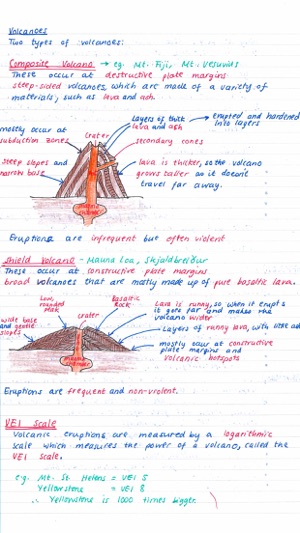 Volcanoes
Two types of volcanoes:
Composite Volcano → eg. Mt. Fiji, Mt. Vesuvius
These occur at destructive plate margins
steep-sided volcanoes, which are made of a variety of
materials, such as lava and ash.
layers of thick lava and ash → erupted and hardened into layers
mostly occur at subduction zones
crater
secondary cones
steep slopes and narrow base
lava is thicker, so the volcano
grows taller as it doesn't
travel far away.
magma chamber
Eruptions are infrequent but often violent
Shield Volcano - Mauna Loa, Skjaldbreiður
These occur at constructive plate margins
broad volcanoes that are mostly made up of pure basaltic lava.
Low, rounded peak
Basaltic Rock
Lava is runny, so when it erupts
it goes far and makes the
volcano wider
crater
wide base and gentle slopes
Layers of runny lava, with little ash
mostly occur at constructive
plate margins and
volcanic hotspots
magma chamber
Eruptions are frequent and non-violent.
VEI Scale
Volcanic eruptions are measured by a logarithmic
scale which measures the power of a volcano, called the
VEI scale.
e.g. Mt. St. Helens = VEI 5
Yellowstone = VEI 8
∴ Yellowstone is 1000 times bigger